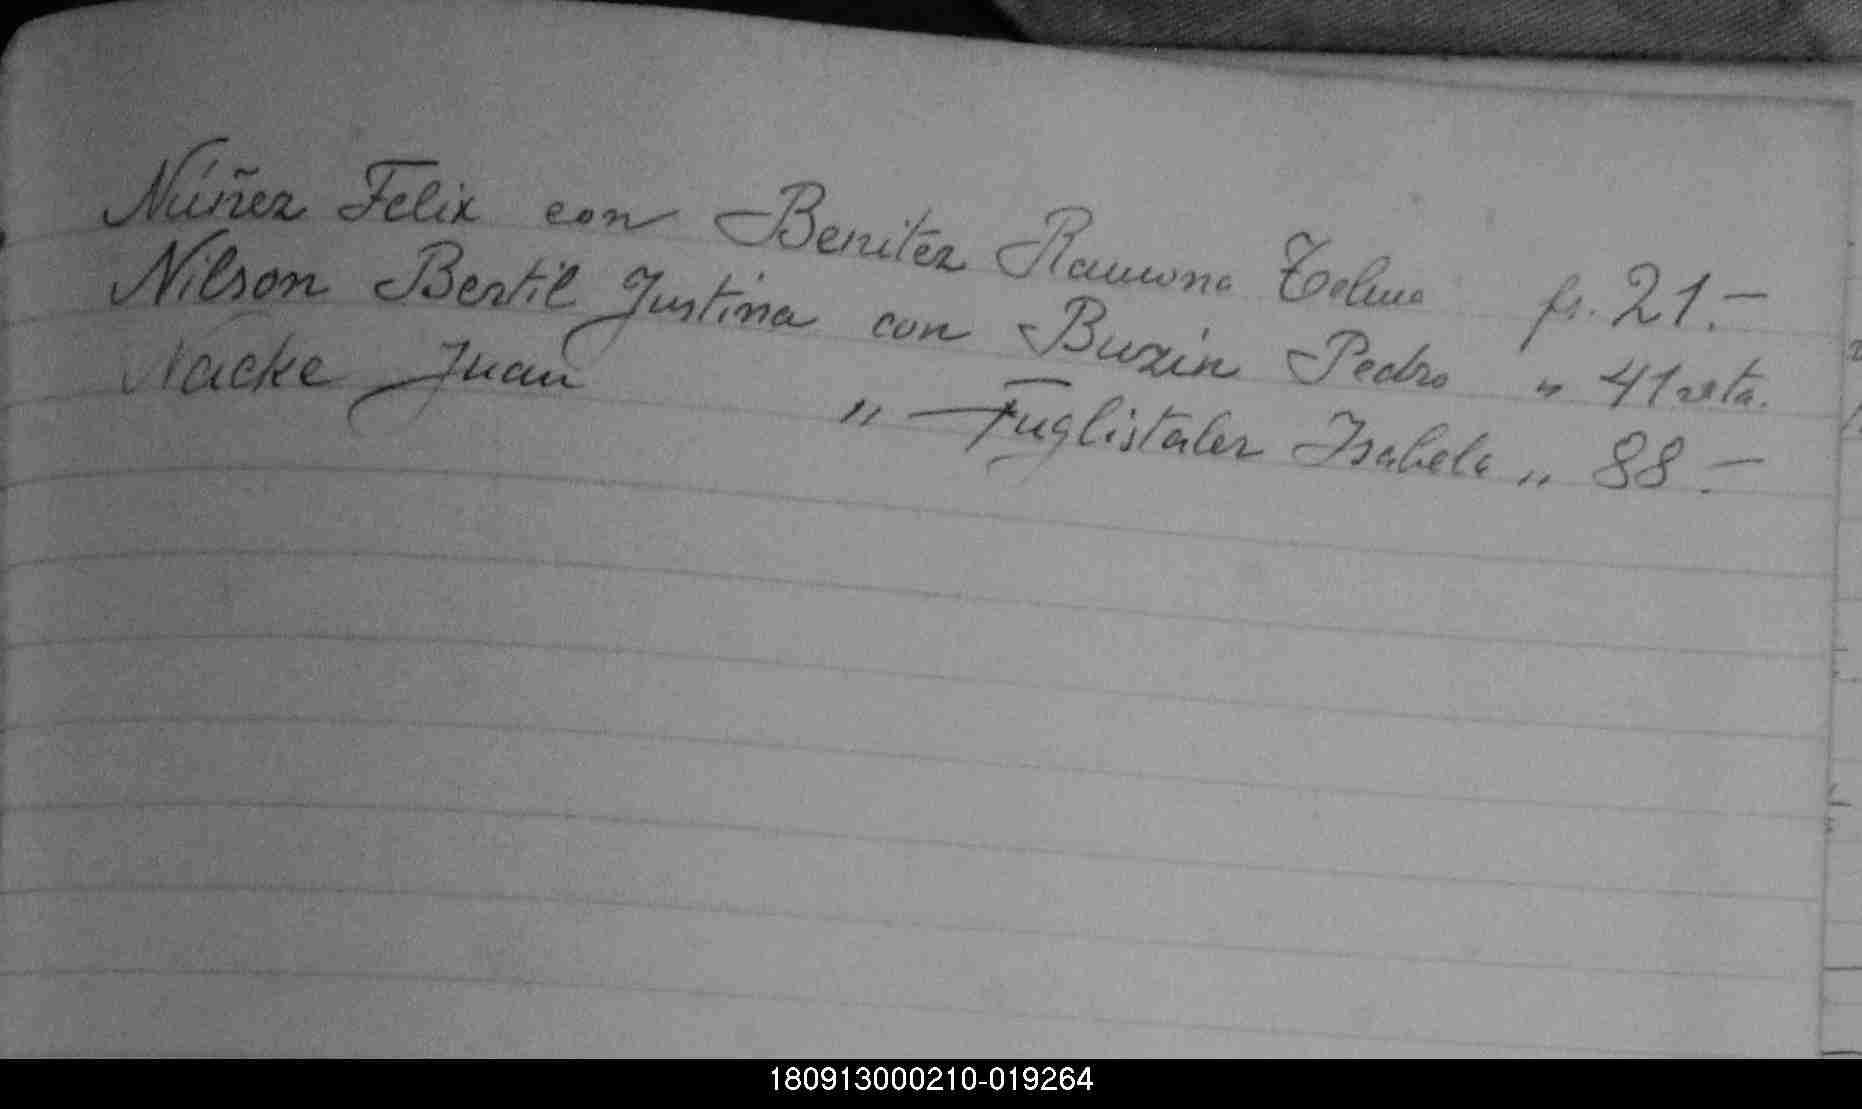 Núñez Felix con Benitez Ramona Telma fs. 21.—
Nilson Bertil Justina con Buzin Pedro " 41 vta.
Nacke Juan " Fuglistaler Isabela " 88.—
180913000210-019264